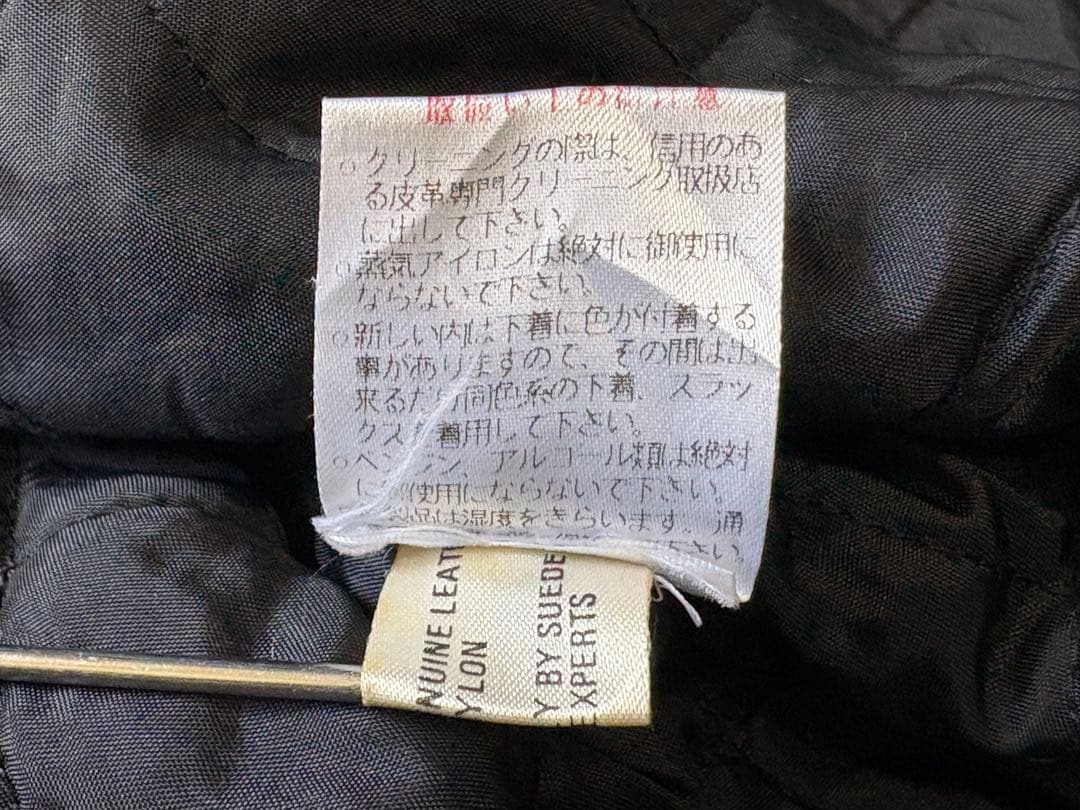 取扱い上の御注意
○クリーニングの際は、信用のあ
る皮革専門クリーニング取扱店
に出して下さい。
○蒸気アイロンは絶対に御使用に
ならないで下さい。
○新しい内は下着に色が付着する
事がありますので、その間は出
来るだけ同色系の下着、スラッ
クスを着用して下さい。
○ベンジン、アルコール類は絶対
に御使用にならないで下さい。
製品は湿度をきらいます。通
下さい。
NUINE LEAT
YLON
Y BY SUEDE
EXPERTS